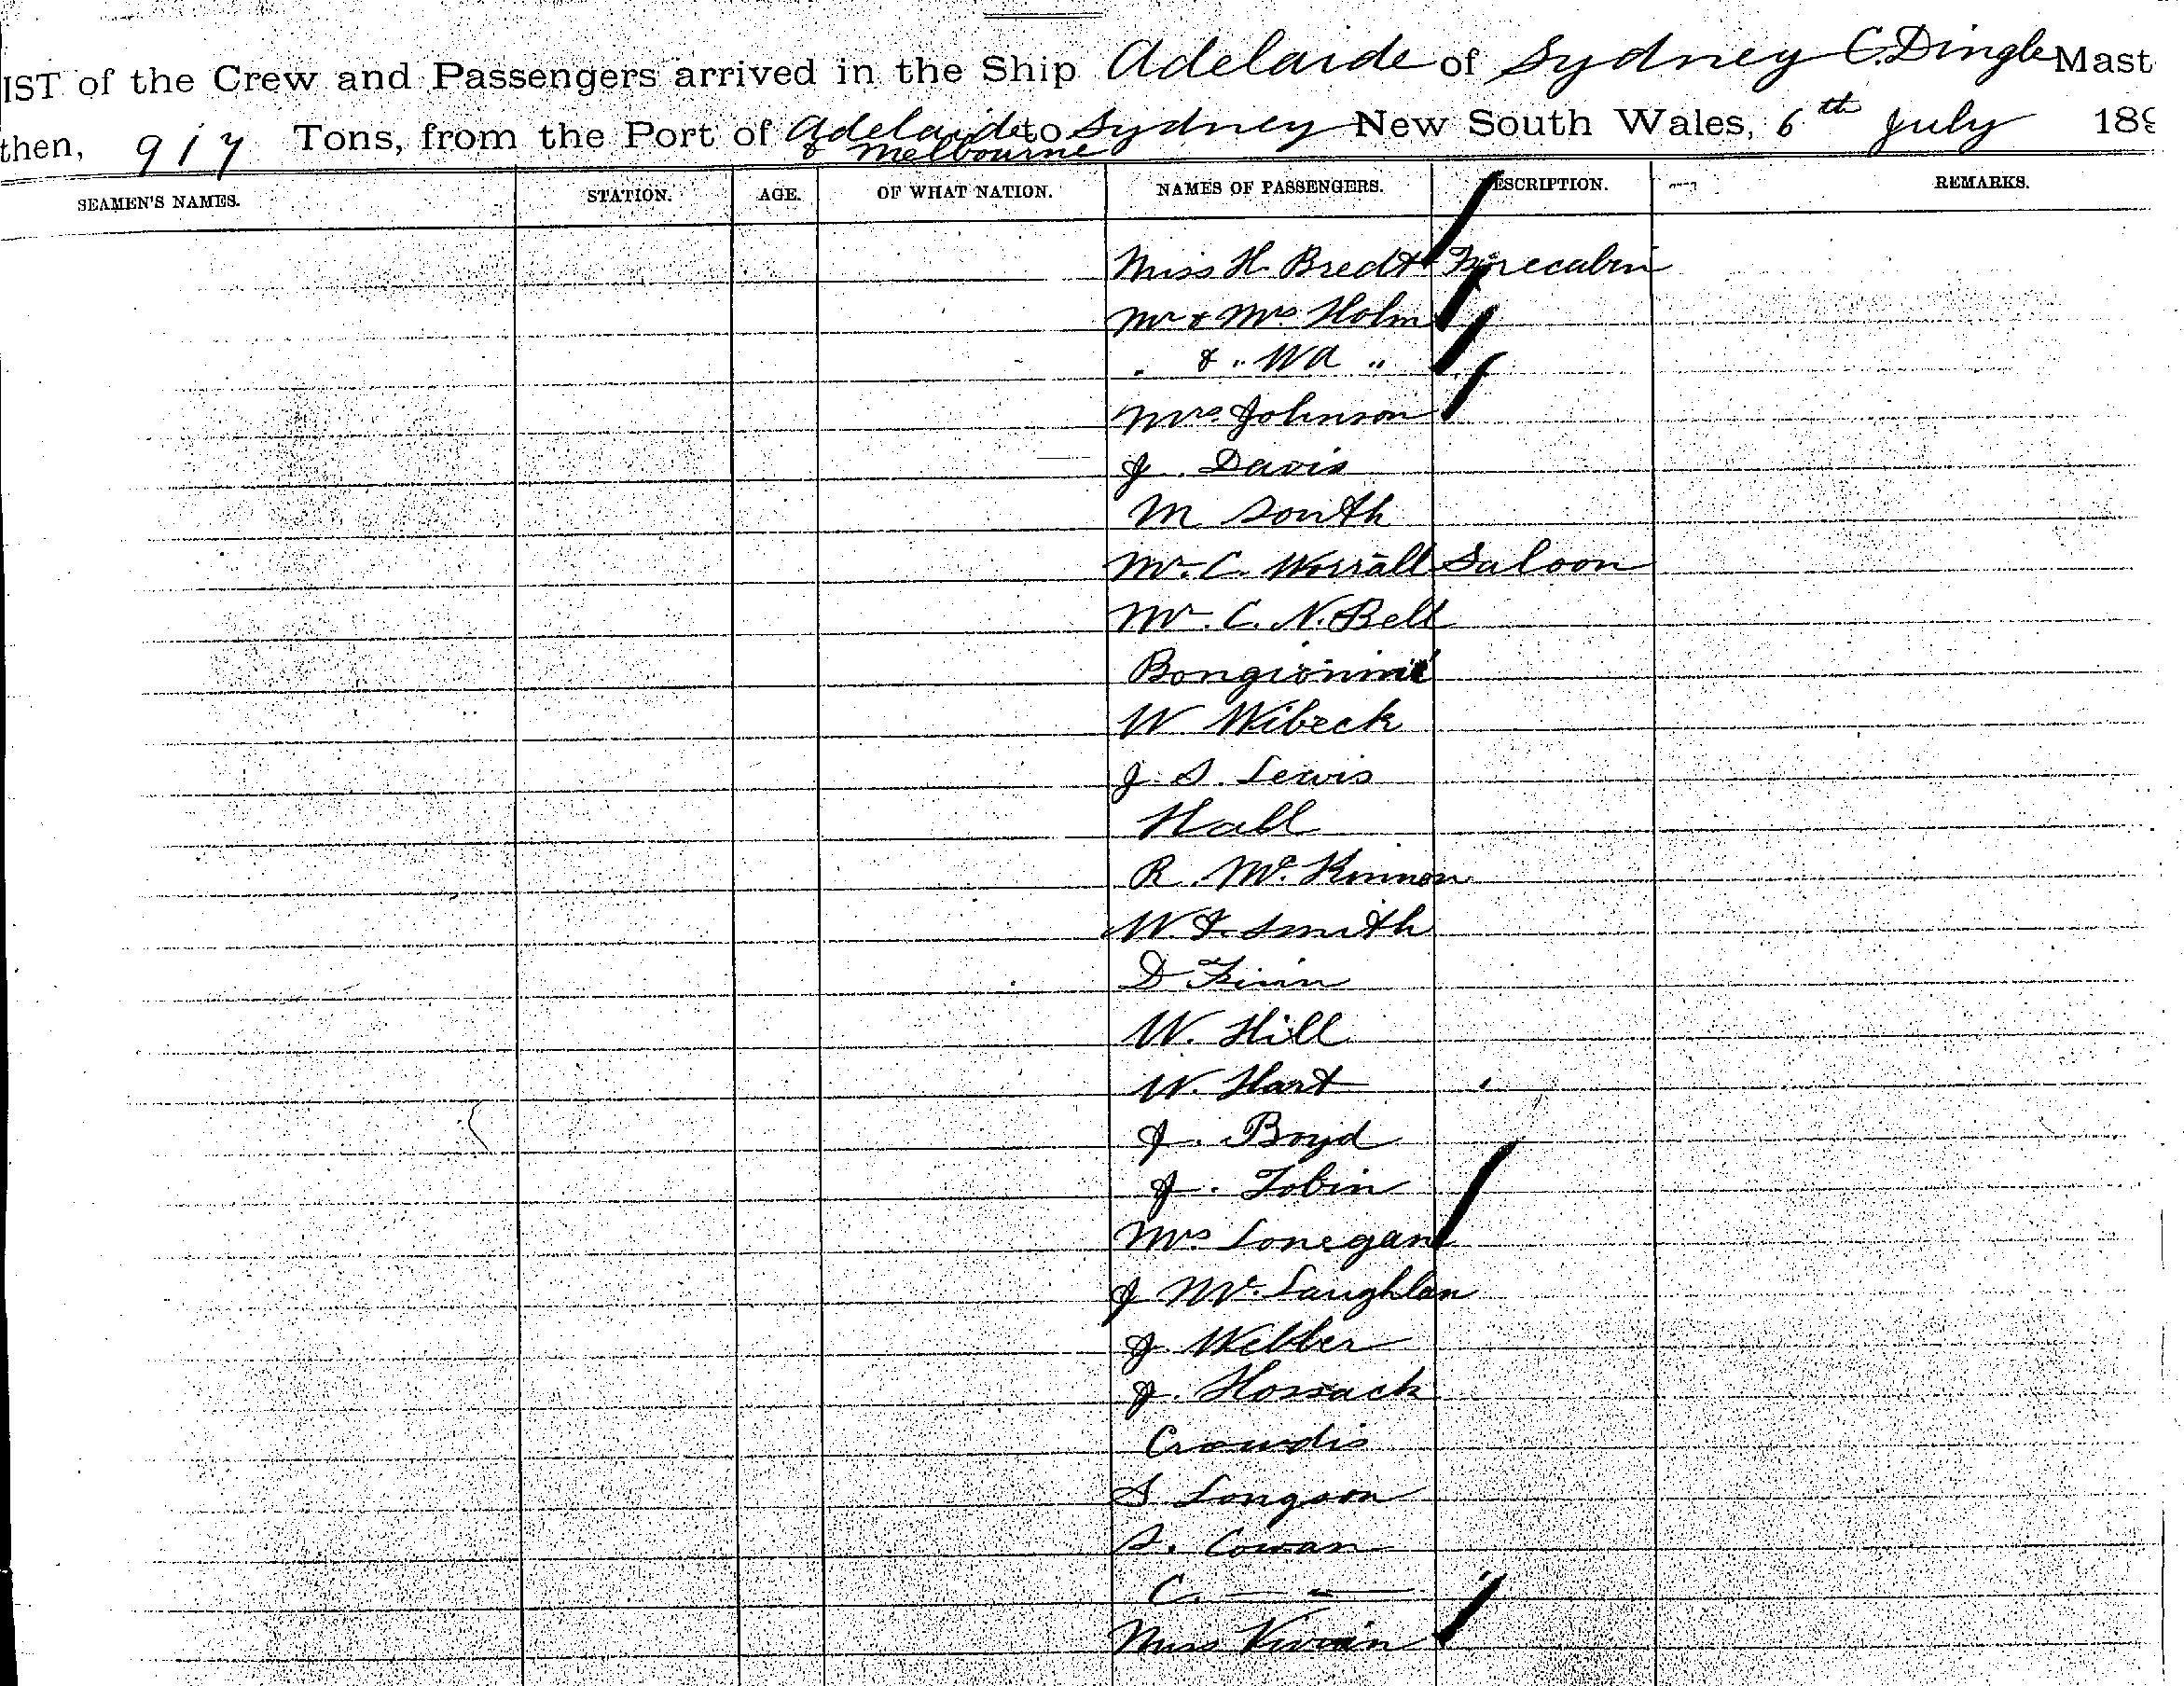 IST of the Crew and Passengers arrived in the Ship Adelaide of Sydney C. Dingle Mast
then, 917 Tons, from the Port of Adelaide to Sydney New South Wales, 6th July 189
& Melbourne
SEAMEN'S NAMES. STATION. AGE. OF WHAT NATION. NAMES OF PASSENGERS. ESCRIPTION. REMARKS.
Miss H. Bredt Forecabin
Mr & Mrs Holm
" & " Wa "
Mrs Johnson
J. Davis
M South
Mr. C. Worrall Saloon
Mr. C. N. Bell
W Wibeck
J. S. Lewis
Hall
R. Mc Kinnon
W. F. Smith
D Finn
W. Hill
W. Hart
J. Boyd
J. Tobin
Mrs Lonegan
J Mc Laughlan
J Webber
J. Hossack
Crowdis
S Longson
S. Cowan
C. — —
Miss Vivian